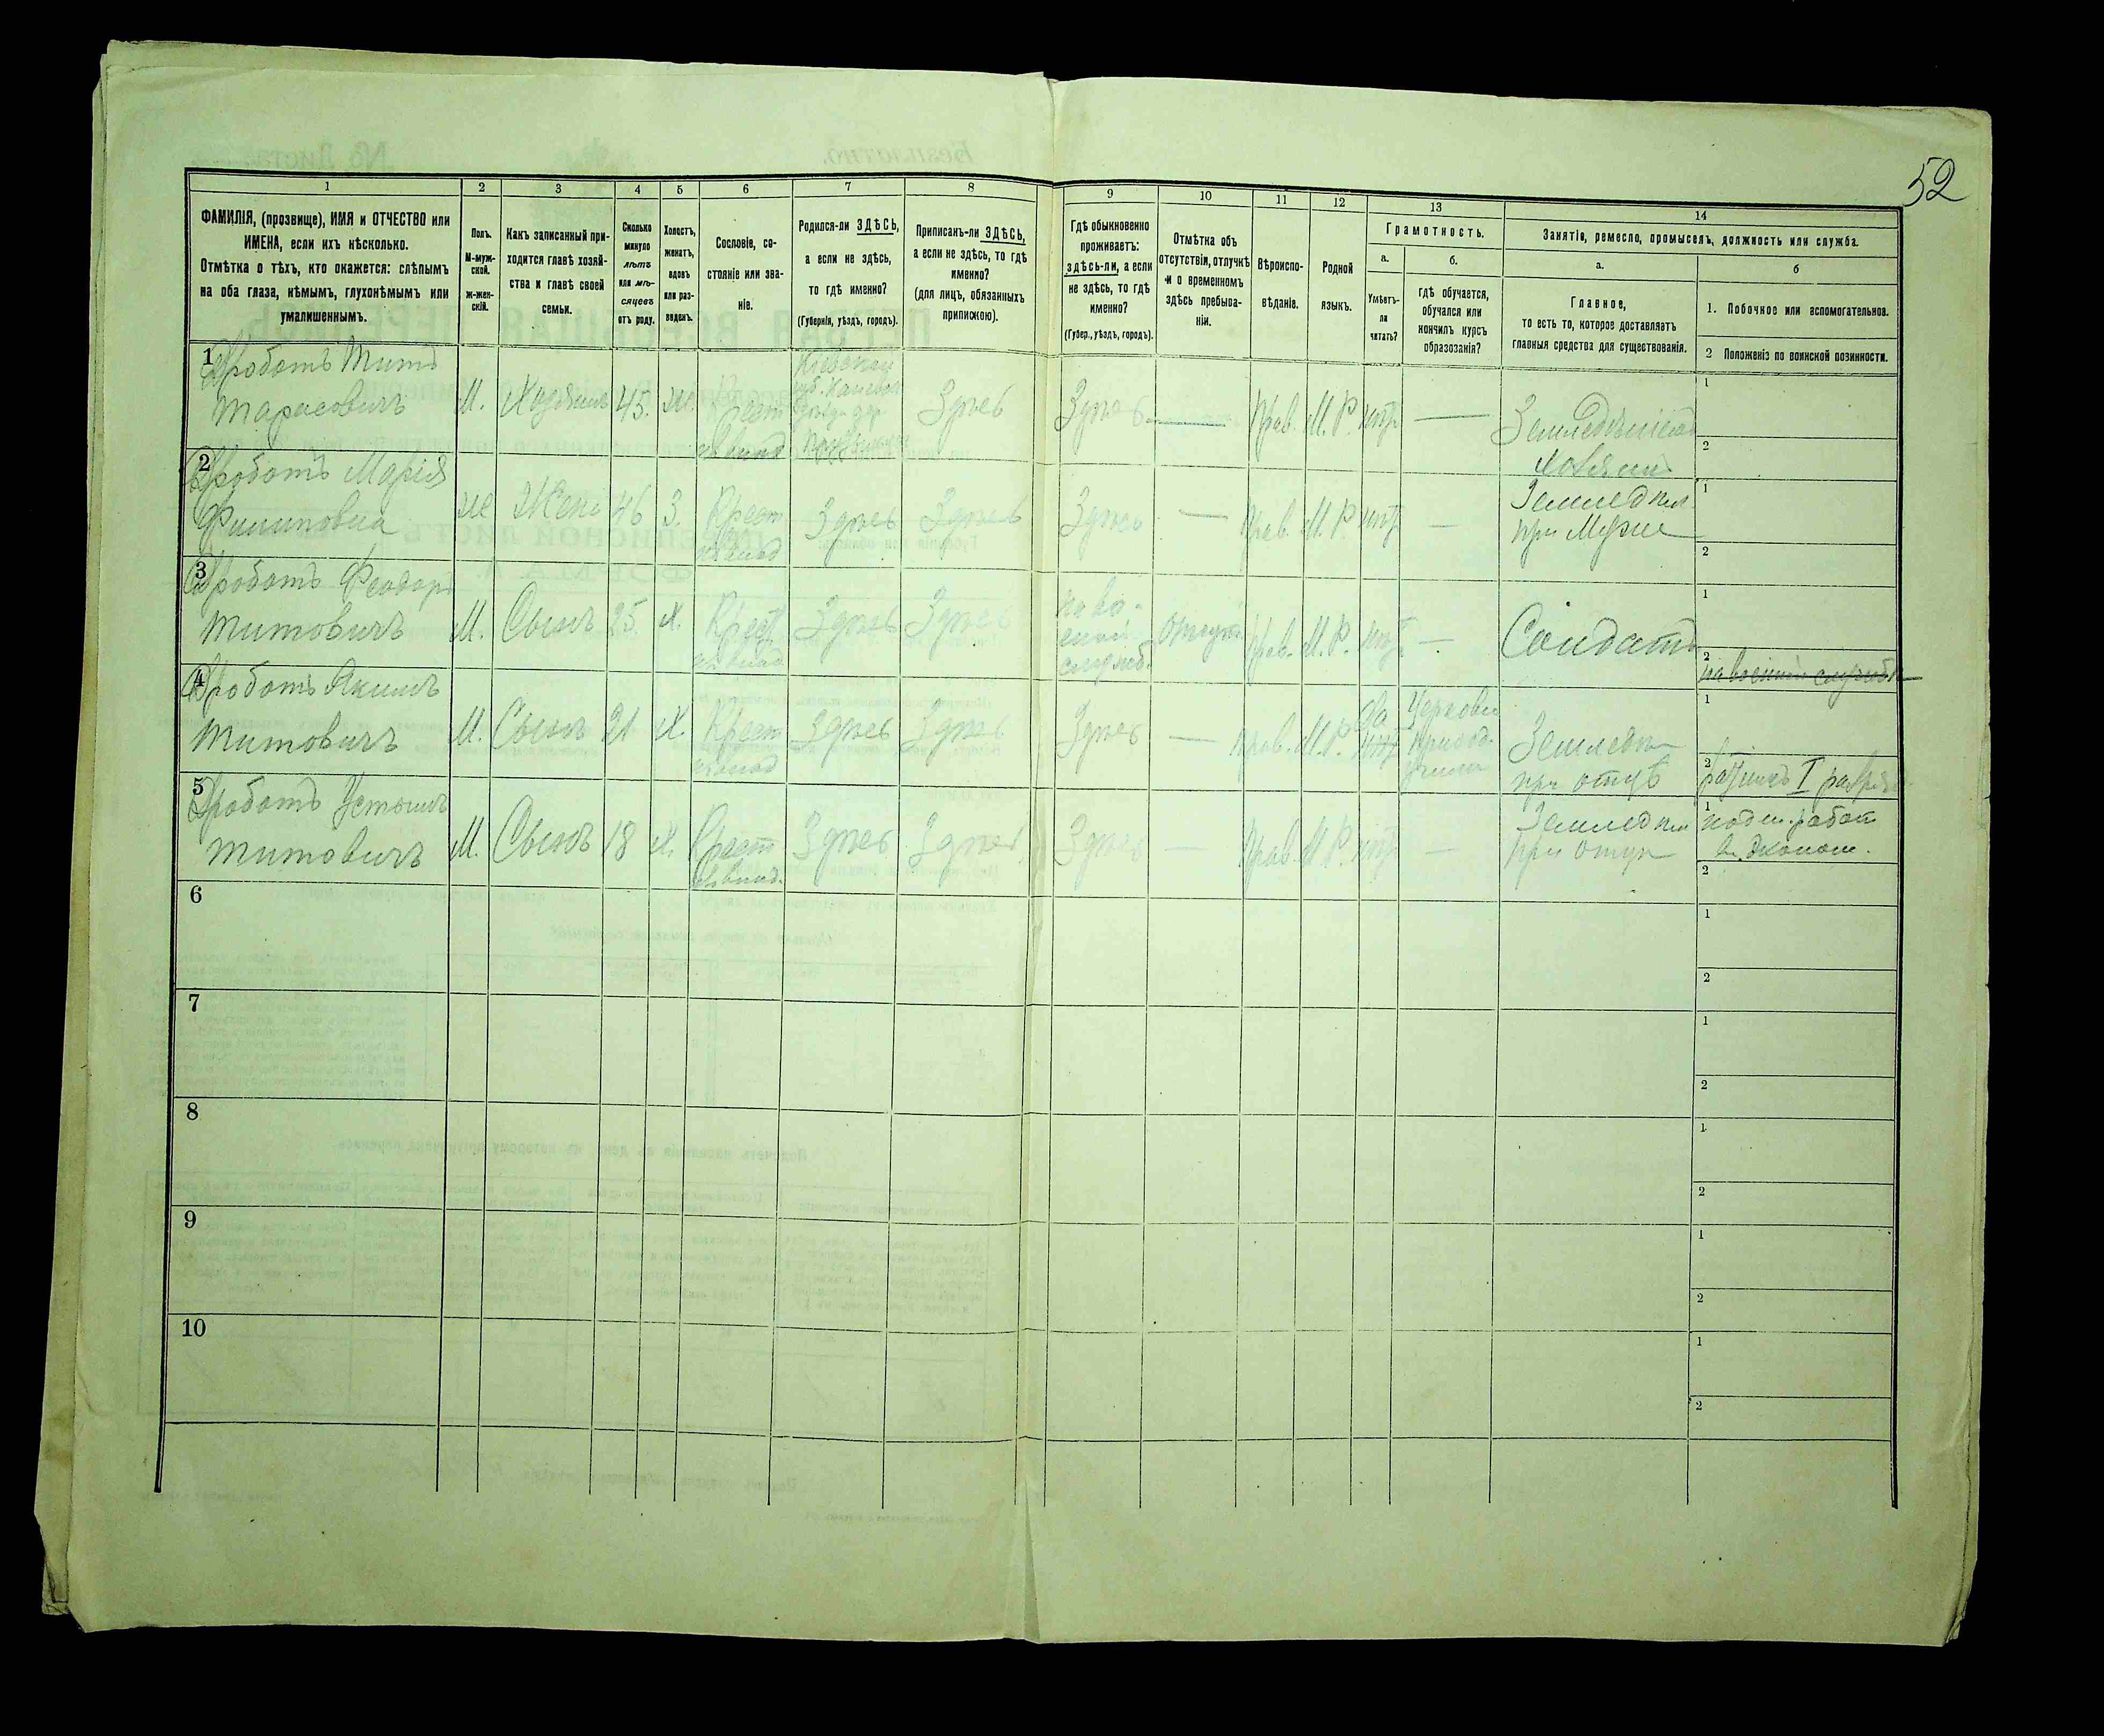 52
1 2 3 4 5 6 7 8 9 10 11 12 13 14
ФАМИЛІЯ, (прозвище), ИМЯ и ОТЧЕСТВО или
ИМЕНА, если ихъ нѣсколько.
Отмѣтка о тѣхъ, кто окажется: слѣпымъ
на оба глаза, нѣмымъ, глухонѣмымъ или
умалишеннымъ.
Полъ.
М-муж-
ской.
ж-жен-
скій.
Какъ записанный при-
ходится главѣ хозяй-
ства и главѣ своей
семьи.
Сколько
минуло
лѣтъ
или мѣ-
сяцевъ
отъ роду.
Холостъ,
женатъ,
вдовъ
или раз-
веденъ.
Сословіе, со-
стояніе или зва-
ніе.
Родился-ли ЗДѢСЬ,
а если не здѣсь,
то гдѣ именно?
(Губернія, уѣздъ, городъ).
Приписанъ-ли ЗДѢСЬ,
а если не здѣсь, то гдѣ
именно?
(для лицъ, обязанныхъ
припискою).
Гдѣ обыкновенно
проживаетъ:
здѣсь-ли, а если
не здѣсь, то гдѣ
именно?
(Губер., уѣздъ, городъ).
Отмѣтка объ
отсутствіи, отлучкѣ
и о временномъ
здѣсь пребыва-
ніи.
Вѣроиспо-
вѣданіе.
Родной
языкъ.
Грамотность.
а.
Умѣетъ-
ли
читать?
б.
Гдѣ обучается,
обучался или
кончилъ курсъ
образованія?
Занятіе, ремесло, промыселъ, должность или служба.
а.
Главное,
то есть то, которое доставляетъ
главныя средства для существованія.
б
1. Побочное или вспомогательное.
2 Положеніе по воинской повинности.
1
Дроботъ Титъ
Тарасовичъ
М.
Хозяинъ
45.
ж.
Крест
Здѣсь
Здѣсь
—
Прав.
М.Р.
нѣт
—
Хозяинъ
1
2
2
Дроботъ Марія
Филиповна
ж
Жена
46
З.
Крест
Здѣсь
Здѣсь
Здѣсь
—
Прав.
М.Р.
нѣт
—
Землед
при Мужѣ
1
2
3
Дроботъ Феодоръ
Титовичъ
М.
Сынъ
25
х.
Крест
Здѣсь
Здѣсь
на во-
енной
служб.
Отсут.
Прав.
М.Р.
нѣт
—
Солдатъ
1
2
на военной службѣ
4
Дроботъ Якимъ
Титовичъ
М.
Сынъ
21
х.
Крест
Здѣсь
Здѣсь
Здѣсь
—
Прав.
М.Р.
Да
нѣт
Церковно
приход.
училищ
Землед
при отцѣ
1
2
ратникъ I разряда
5
Дроботъ Устимъ
Титовичъ
М.
Сынъ
18
х.
Крест
Здѣсь
Здѣсь
Здѣсь
—
Прав.
М.Р.
нѣт
—
Землед
при отцѣ
1
поден. работ
въ эконом.
2
6
1
2
7
1
2
8
1
2
9
1
2
10
1
2